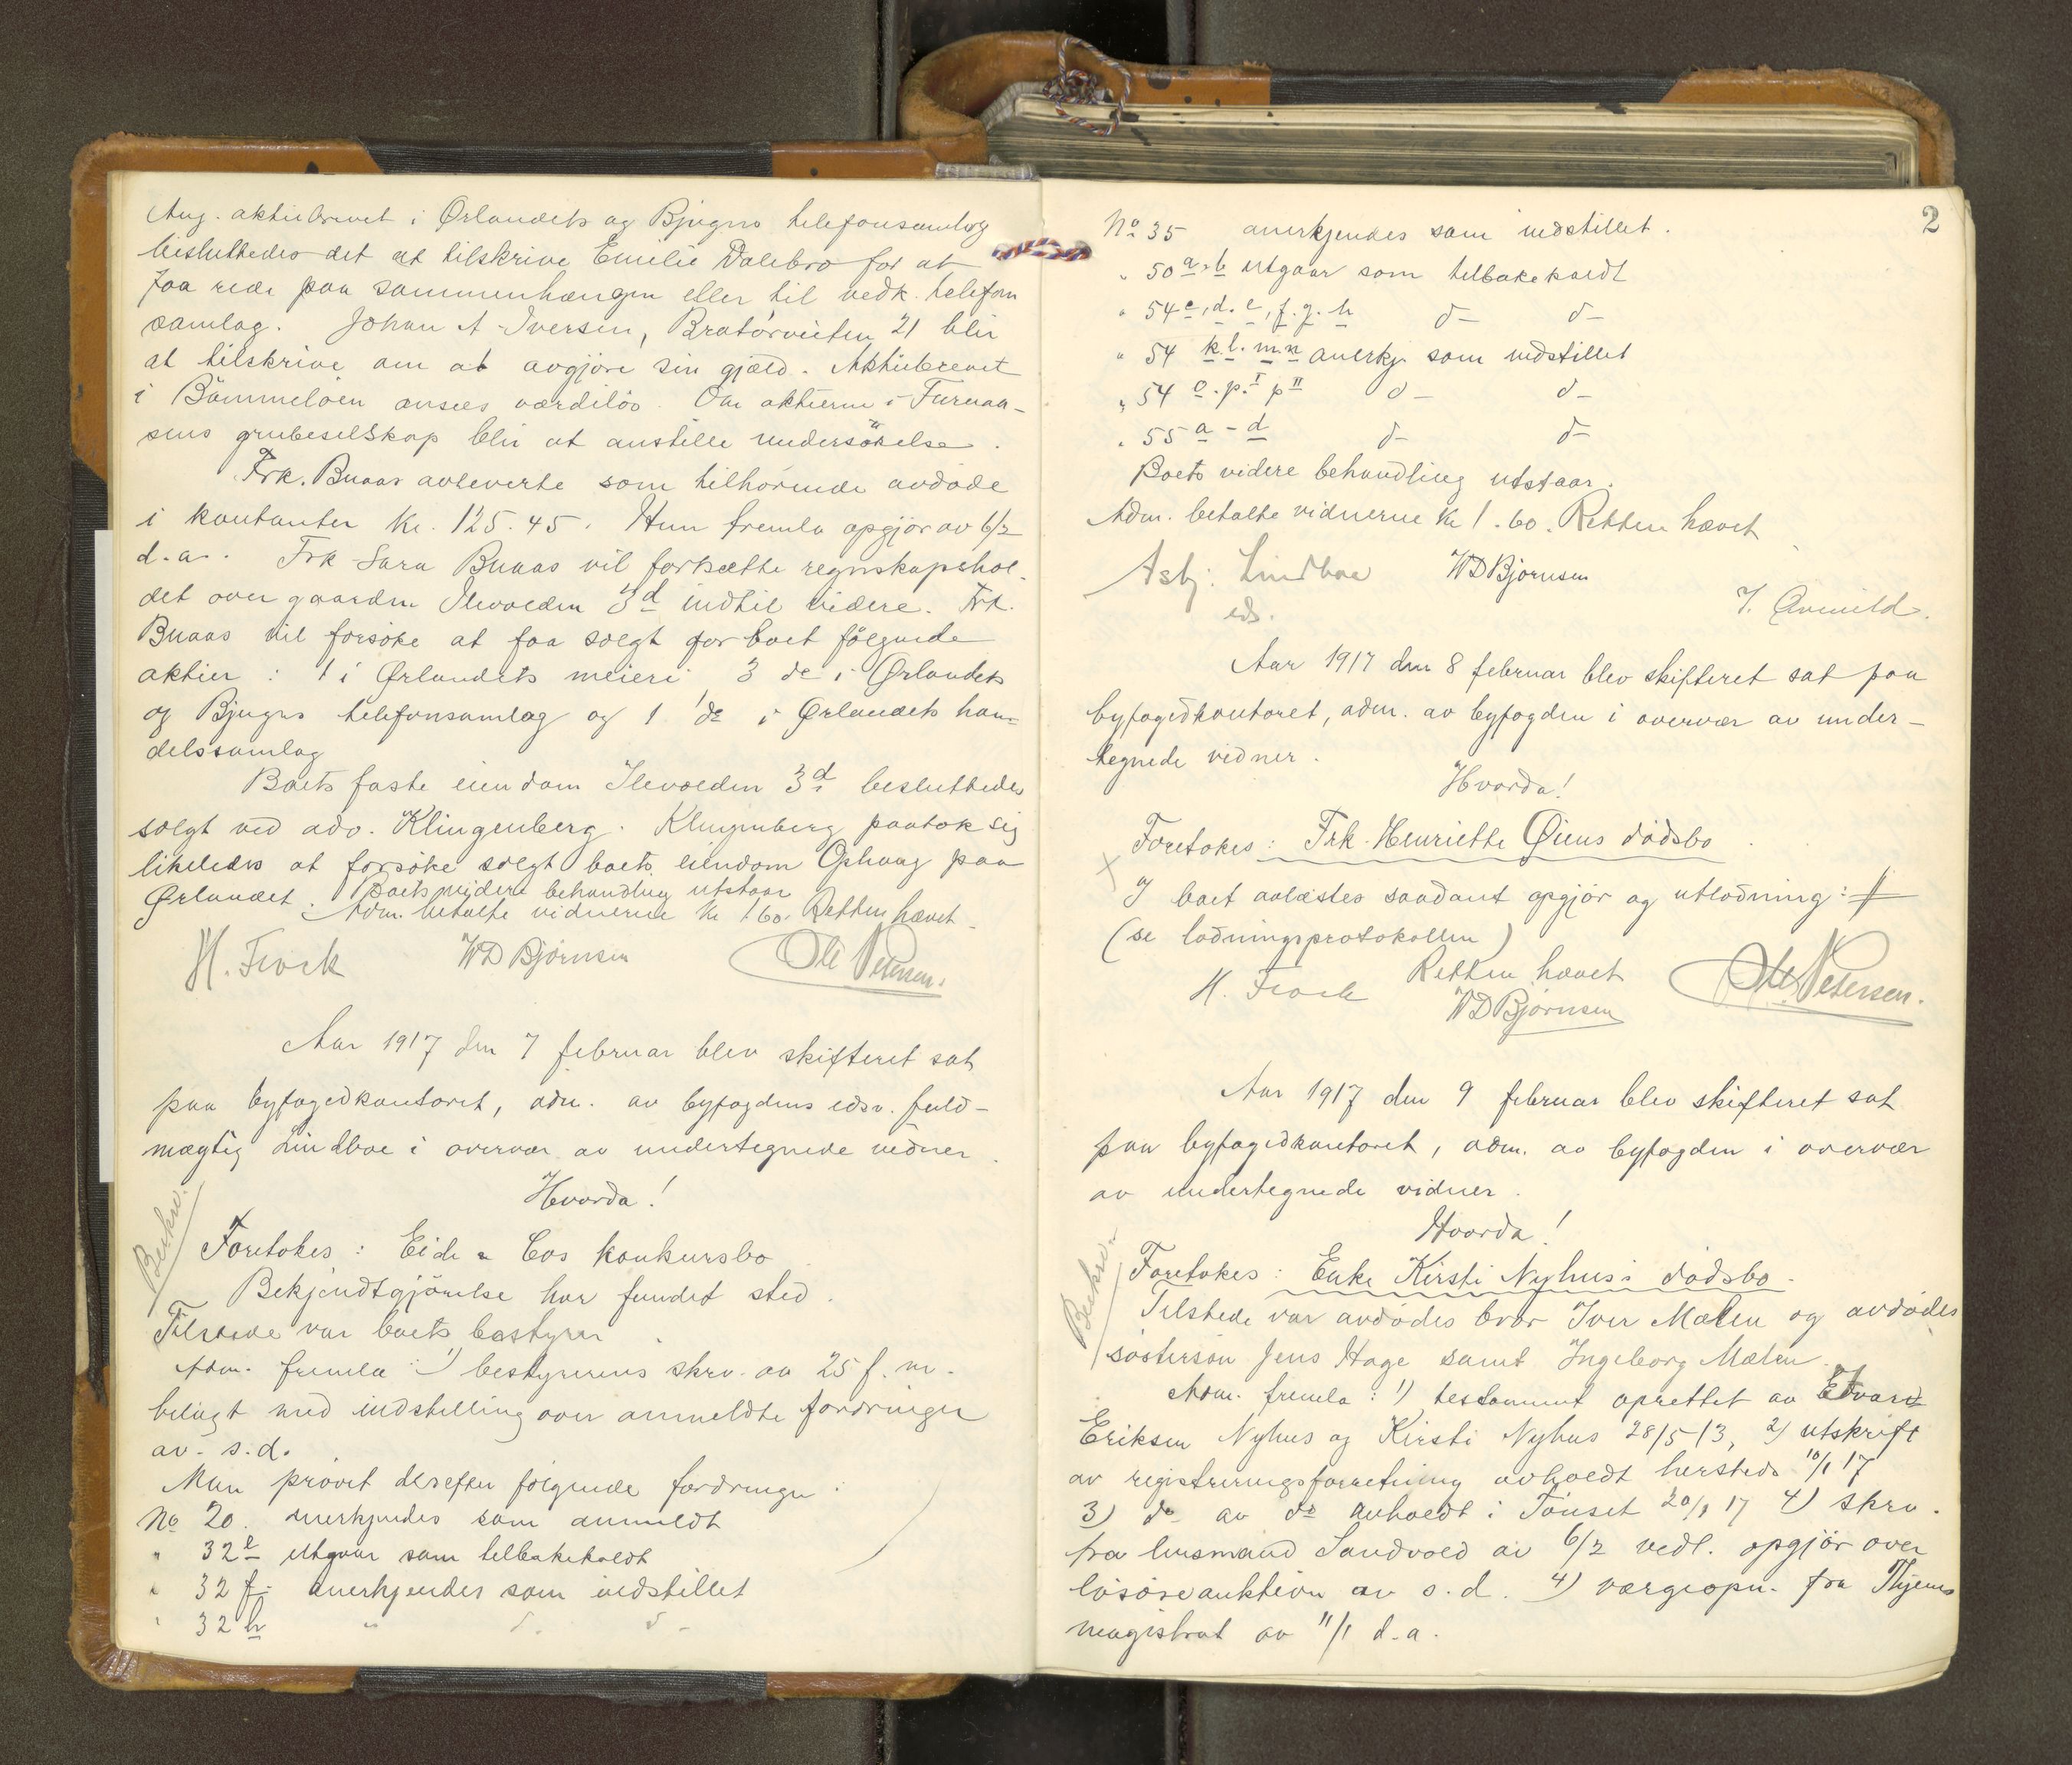 Ang. aktiebrevet i Ørlandets og Bjugns telefonsamlag
besluttedes det at tilskrive Emilie Dalebro for at
faa rede paa sammenhængen eller til vedk. telefon
samlag. Johan A. Iversen, Bratørveiten 21 blir
at tilskrive om at avgjöre sin gjæld. Aktiebrevet
i Bömmelöen ansees værdilös. Om aktierne i Furuaa-
sens grubeselskap blir at anstille undersökelse.
Frk. Buaas avleverte som tilhörende avdöde
i kontanter Kr. 125.45. Hun fremla opgjör av 6/2
d.a. Frk Sara Buaas vil fortsætte regnskapshol-
det over gaarden Ilevolden 3d indtil videre. Frk.
Buaas vil forsöke at faa solgt for boet fölgende
aktier: 1 i Ørlandets meieri 3 do i Ørlandets
og Bjugns telefonsamlag og 1 do i Ørlandets han-
delssamlag
Boets faste eiendom Ilevolden 3d besluttedes
solgt ved adv. Klingenberg. Klingenberg paatok sig
likeledes at forsöke solgt boets eiendom Ophaug paa
Ørlandet. Boets videre behandling utstaar
Adm. betalte vidnerne Kr 1.60. Retten hævet.
H. Frock WD Björnsen Ole Petersen.
Aar 1917 den 7 februar blev skifteret sat
paa byfogedkontoret, adm. av byfogdens edsv. fuld-
mægtig Lindboe i overvær av undertegnede vidner.
Hvorda!
Bekr.
Foretokes: Eide & Cos konkursbo
Bekjendtgjörelse har fundet sted.
Tilstede var boets bestyrer.
Adm. fremla: 1) bestyrerens skrv. av 25 f. m.
bilagt med indstilling over anmeldte fordringer
av s.d.
Man prövet derefter fölgende fordringer:
No 20. anerkjendes som anmeldt
" 32 e utgaar som tilbakekaldt
" 32 f. anerkjendes som indstillet
" 32 h " d- d-
2
No 35 anerkjendes som indstillet.
" 50 a.b utgaar som tilbakekaldt
" 54 c, d. e, f. g. h d- d-
" 54 k. l. m. n anerkj. som indstillet
" 54 o. p.I pII d- d-
" 55 a - d d- d-
Boets videre behandling utstaar.
Adm. betalte vidnerne Kr 1.60. Retten hævet
Asbj. Lindboe WD Björnsen
eds. J. Arnild.
Aar 1917 den 8 februar blev skifteret sat paa
byfogedkontoret, adm. av byfogden i overvær av under-
tegnede vidner.
Hvorda!
Foretokes: Frk. Henriette Øiens dödsbo.
I boet avlæstes saadant opgjör og utlodning: #
(se lodningsprotokollen)
Retten hævet
H. Frock WD Björnsen Ole Petersen.
Aar 1917 den 9 februar blev skifteret sat
paa byfogedkontoret, adm. av byfogden i overvær
av undertegnede vidner.
Hvorda!
Bekr.
Foretokes: Enke Kirsti Nyhus's dödsbo.
Tilstede var avdödes bror Iver Mælen og avdödes
söstersön Jens Hage samt Ingeborg Mælen.
Adm. fremla: 1) testament oprettet av Edvard
Eriksen Nyhus og Kirsti Nyhus 28/5-13, 2) utskrift
av registreringsforretning avholdt hersteds 10/1 17
3) do av do avholdt i Tönset 20/1 17 4) skrv.
fra lensmand Sandvold av 6/2 vedl. opgjör over
lösöreauktion av s.d. 4) værgeopn. fra Thjems
magistrat av 11/1 d.a.